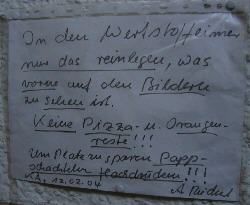 In den Wertstoffeimer
nur das reinlegen, was
vorne auf den Bildern
zu sehen ist.
Keine Pizza- u. Orangen-
reste!!!
Um Platz zu sparen Papp-
schachteln flachdrücken!!!
12.02.04